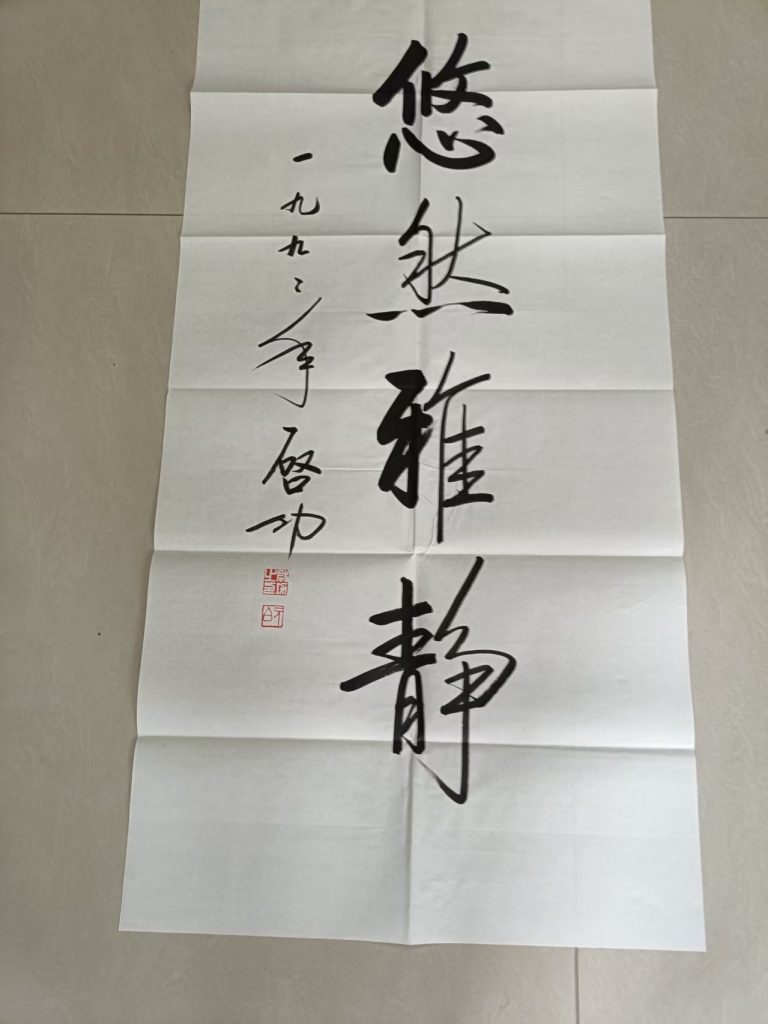 悠然雅静
一九九二年 启功